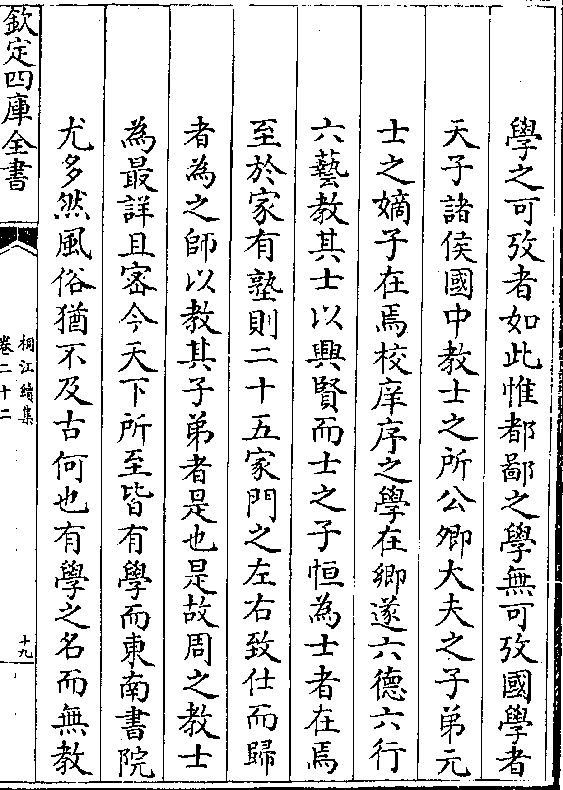 學之可攷者如此惟都鄙之學無可攷國學者
天子諸侯國中教士之所公卿大夫之子弟元
士之嫡子在焉校庠序之學在鄉遂六德六行
六藝教其士以興賢而士之子恒為士者在焉
至於家有塾則二十五家門之左右致仕而歸
者為之師以教其子弟者是也是故周之教士
為最詳且密今天下所至皆有學而東南書院
尤多然風俗猶不及古何也有學之名而無教
欽定四庫全書
桐江續集
卷二十二
十九